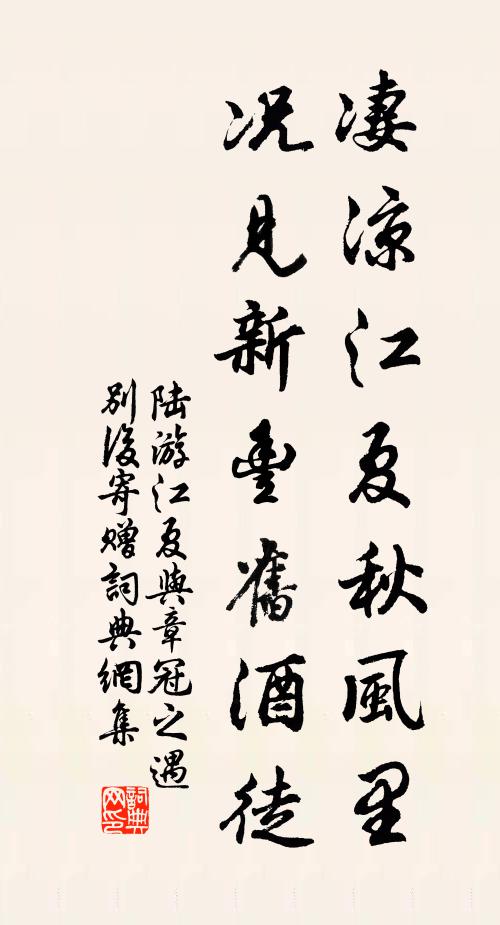 凄涼江夏秋風里
况見新豊舊酒徒
陆游江夏與章冠之遇
別後寄贈詞典網集
詞典
网印